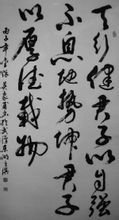 天行健君子以自强
不息地势坤君子
以厚德载物